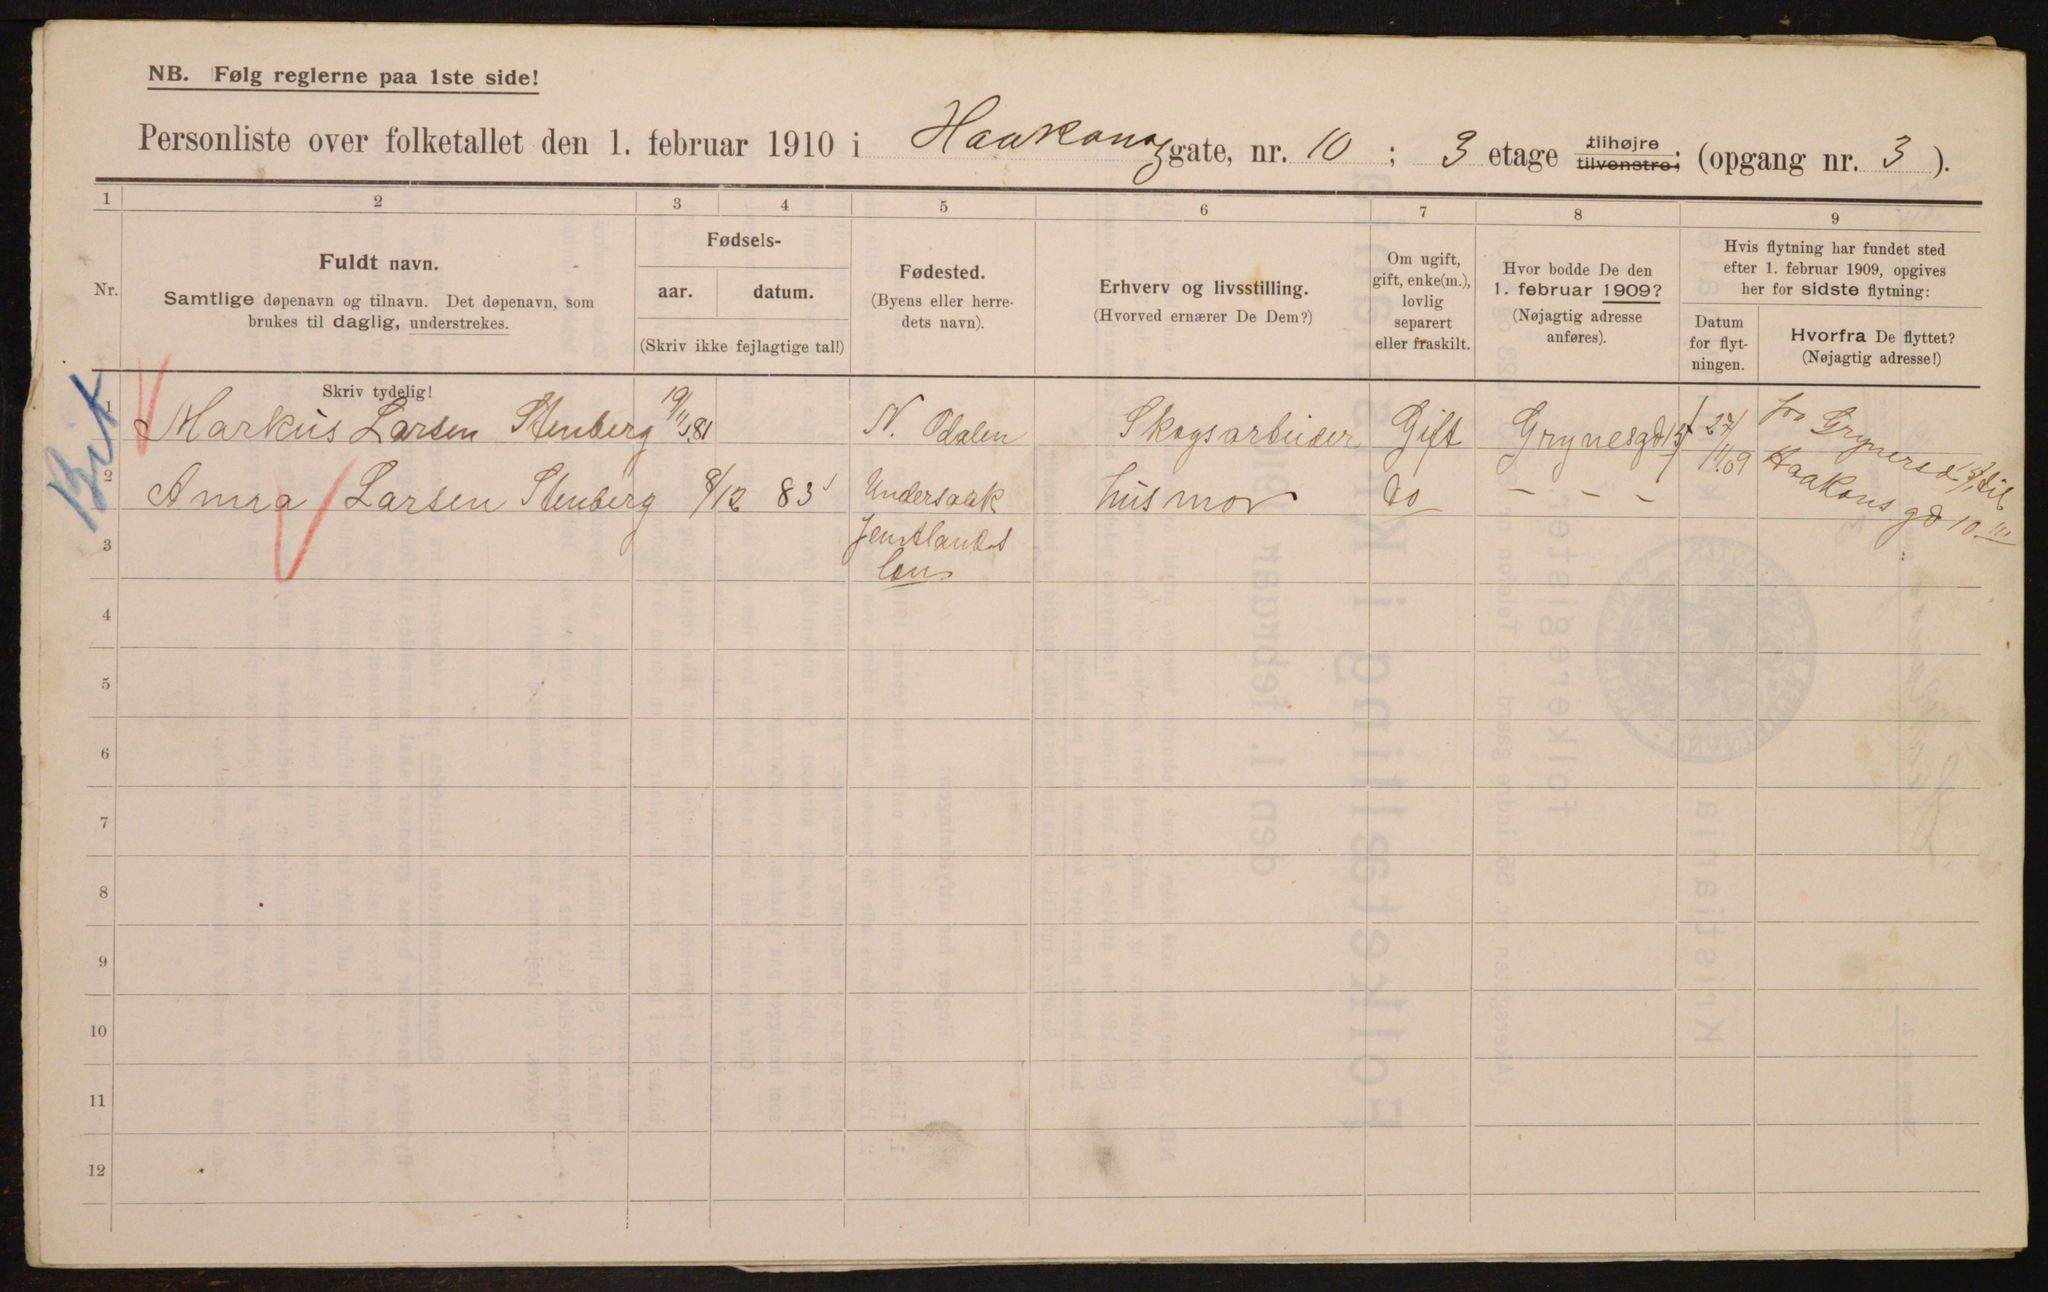 NB. Følg reglerne paa 1ste side!
Personliste over folketallet den 1. februar 1910 i Haakons gate, nr. 10 ; 3 etage tilhøjre tilvenstre; (opgang nr. 3 ).
1 2 3 4 5 6 7 8 9
Nr.
Fuldt navn.
Samtlige døpenavn og tilnavn. Det døpenavn, som
brukes til daglig, understrekes.
Skriv tydelig!
Fødsels-
aar. datum.
(Skriv ikke fejlagtige tal!)
Fødested.
(Byens eller herre-
dets navn).
Erhverv og livsstilling.
(Hvorved ernærer De Dem?)
Om ugift,
gift, enke(m.),
lovlig
separert
eller fraskilt.
Hvor bodde De den
1. februar 1909?
(Nøjagtig adresse
anføres).
Hvis flytning har fundet sted
efter 1. februar 1909, opgives
her for sidste flytning:
Datum
for flyt-
ningen.
Hvorfra De flyttet?
(Nøjagtig adresse!)
1 Markus Larsen Stenberg 19/11 81 N. Odalen Skogsarbeider Gift 27/11 09
2 Anna Larsen Stenberg 8/12 83 Undersaak husmor do - - - Haakons gd 10 III
3 Jemtlands
len
4
5
6
7
8
9
10
11
12